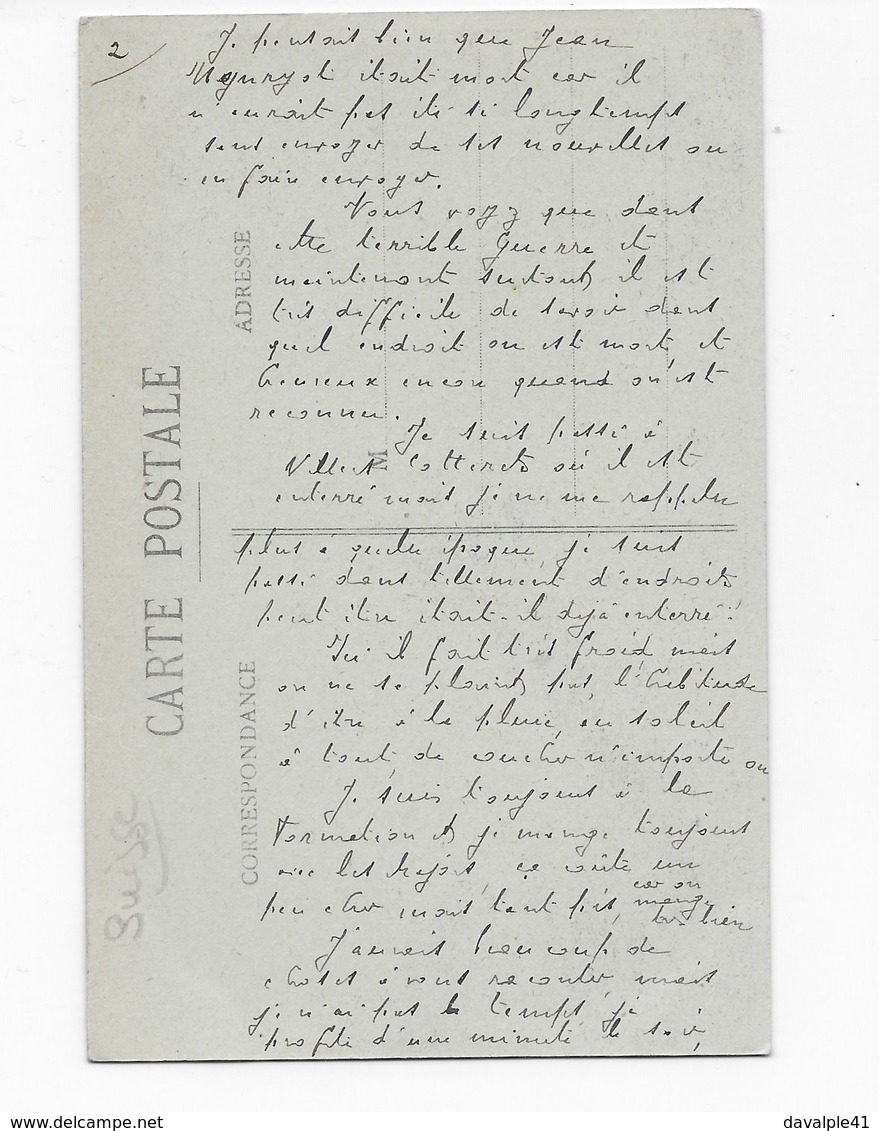 2
Je pensais bien que Jean
était mort car il
n'aurait pas été si longtemps
sans envoyer de ses nouvelles ou
en faire envoyer.
Vous voyez que dans
cette terrible guerre et
maintenant surtout il est
très difficile de savoir dans
quel endroit on est mort et
heureux encore quand on est
reconnu.
Je suis passé à
Villers Cotterets où il est
enterré mais je ne me rappelle
plus à quelle époque je suis
passé dans tellement d'endroits
peut être était-il déjà enterré!
Ici il fait très froid mais
on ne se plaint pas, l'habitude
d'être à la pluie, au soleil
à tout, de coucher n'importe ou
Je suis toujours à la
formation et je mange toujours
avec les ça coûte un
peu cher mais tant pis, car on
mange
très bien
J'aurais beaucoup de
choses à vous raconter mais
je n'ai pas le temps, je
profite d'une minute le soir,
CARTE POSTALE
ADRESSE
M
CORRESPONDANCE
Suisse
www.delcampe.net
davalple41